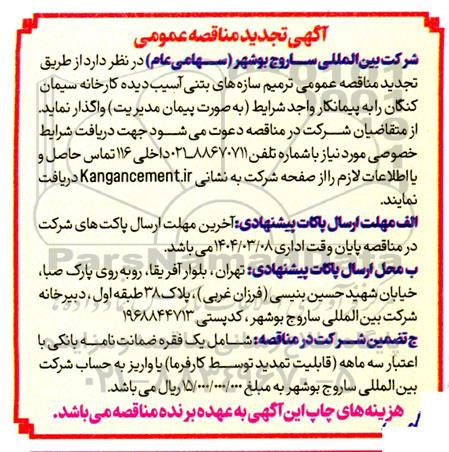 آگهی تجدید مناقصه عمومی
شرکت بین المللی ساروج بوشهر (سهامی عام) در نظر دارد از طریق
تجدید مناقصه عمومی ترمیم سازه های بتنی آسیب دیده کارخانه سیمان
کنگان را به پیمانکار واجد شرایط (به صورت پیمان مدیریت) واگذار نماید.
از متقاضیان شرکت در مناقصه دعوت می شود جهت دریافت شرایط
خصوصی مورد نیاز با شماره تلفن ۸۸۶۷۰۷۱۱-۰۲۱ داخلی ۱۱۶ تماس حاصل و
یا اطلاعات لازم را از صفحه شرکت به نشانی Kangancement.ir دریافت
نمایند.
الف مهلت ارسال پاکات پیشنهادی: آخرین مهلت ارسال پاکت های شرکت
در مناقصه پایان وقت اداری ۱۴۰۴/۰۳/۰۸ می باشد.
ب محل ارسال پاکات پیشنهادی: تهران، بلوار آفریقا، روبه روی پارک صبا،
خیابان شهید حسین بنیسی (فرزان غربی)، پلاک ۳۸ طبقه اول، دبیرخانه
شرکت بین المللی ساروج بوشهر، کدپستی ۱۹۶۸۸۴۴۷۱۳
ج تضمین شرکت در مناقصه: شامل یک فقره ضمانت نامه بانکی با
اعتبار سه ماهه (قابلیت تمدید توسط کارفرما) یا واریز به حساب شرکت
بین المللی ساروج بوشهر به مبلغ ۱۵/۰۰۰/۰۰۰/۰۰۰ ریال می باشد.
هزینه های چاپ این آگهی به عهده برنده مناقصه می باشد.
ParsNamadData